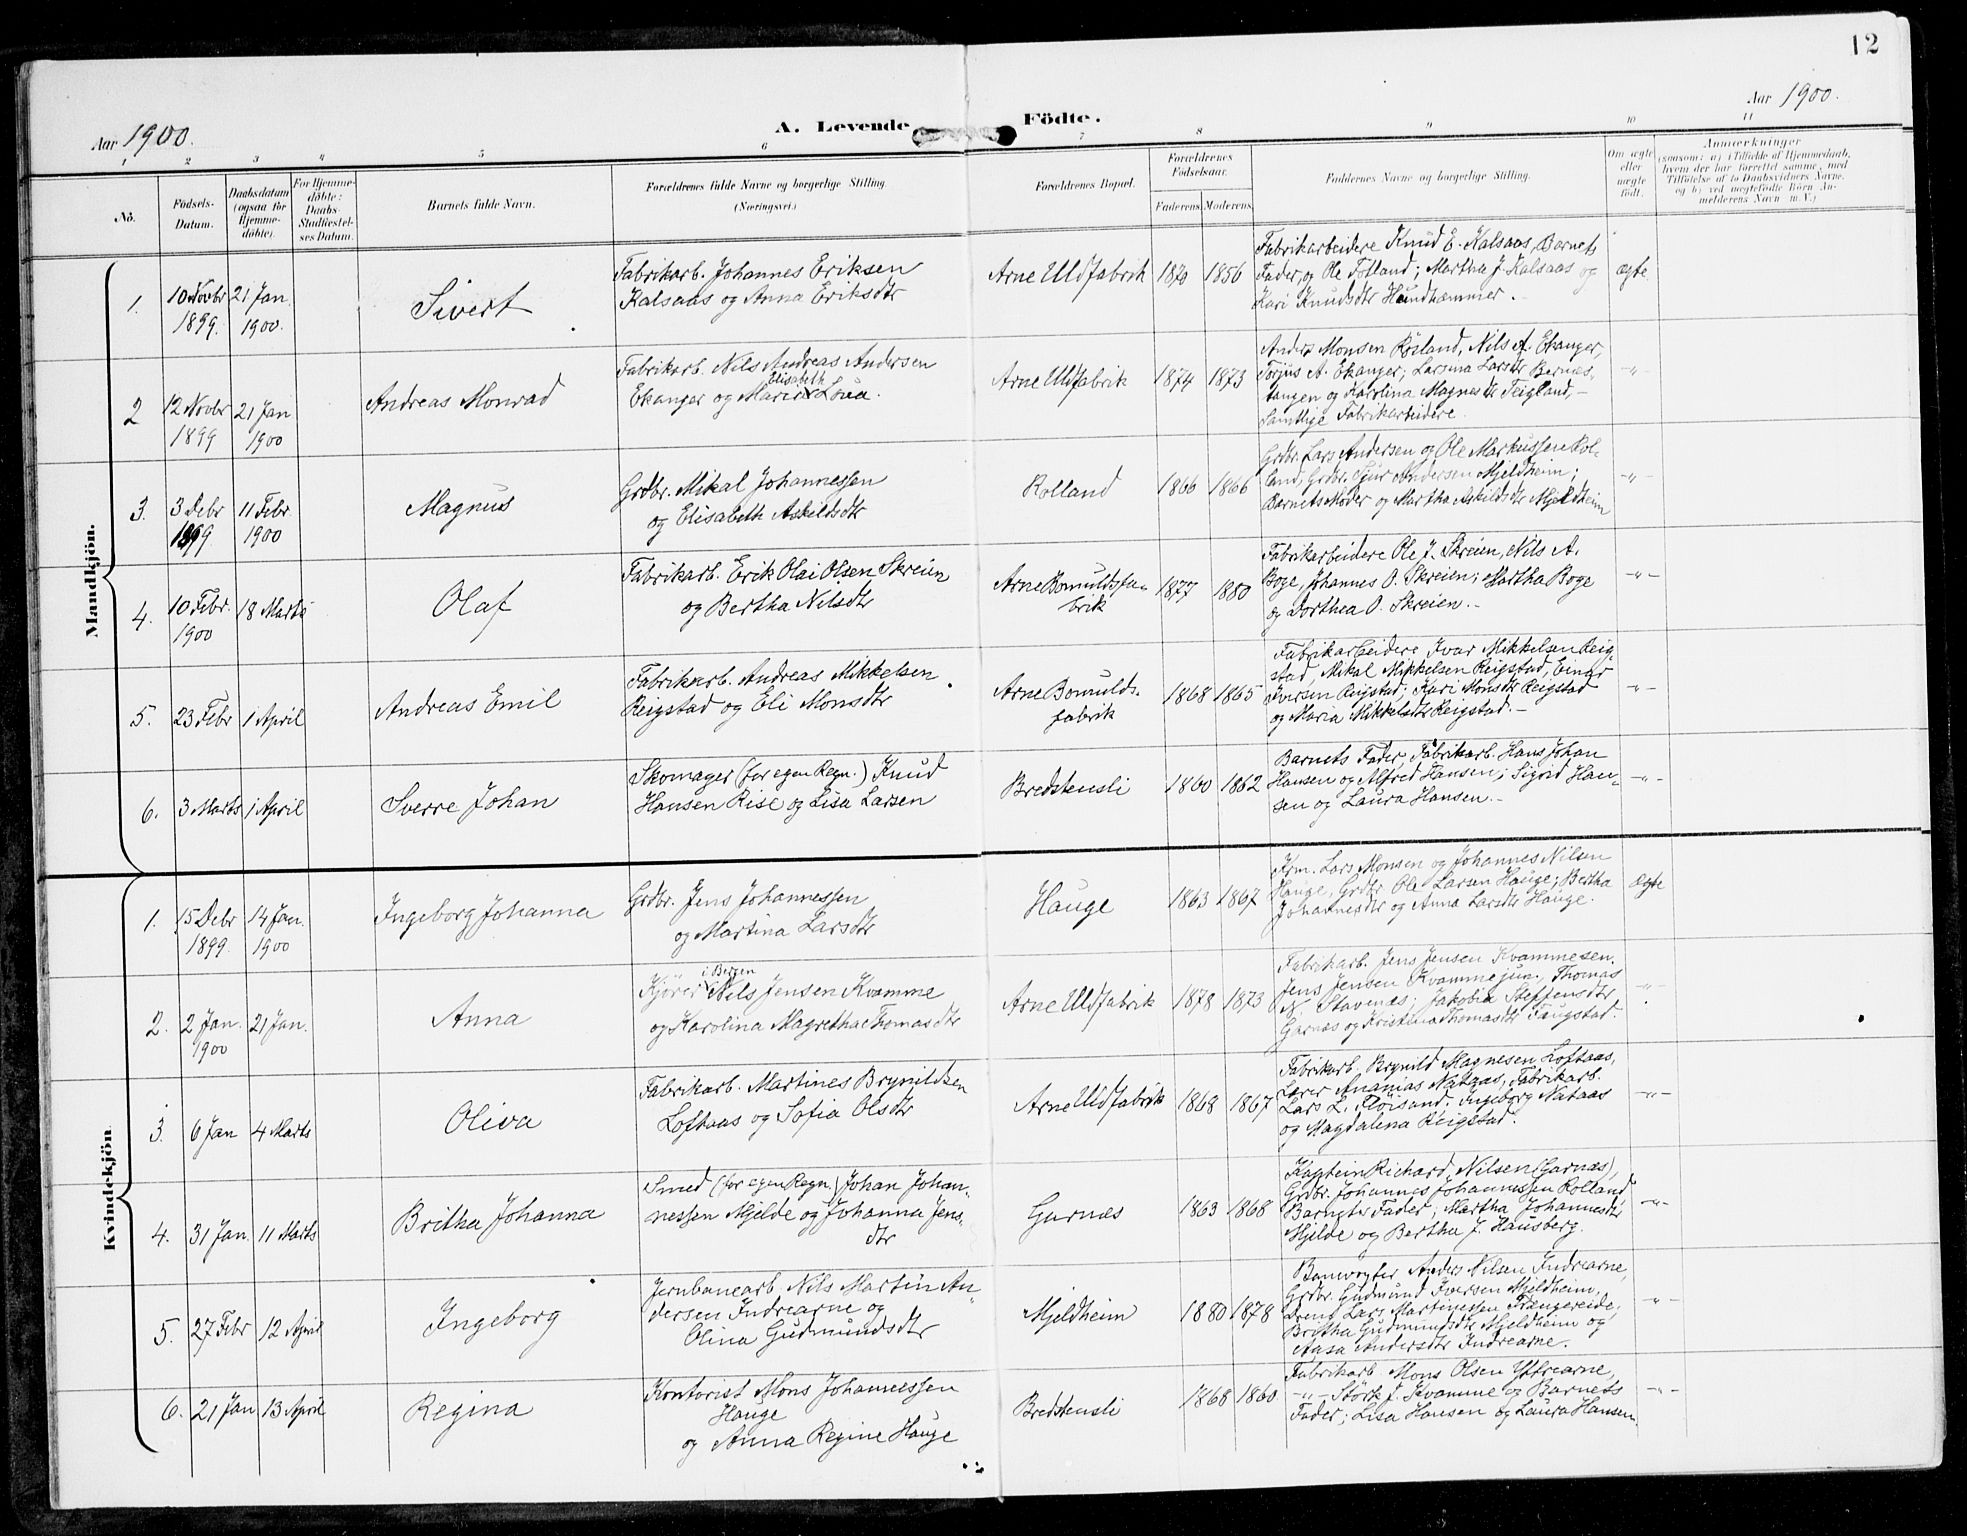 12
Aar 1900.
A. Levende Födte.
Aar 1900.
1 2 3 4 5 6 7 8 9 10 11
No.
Födsels-
Datum.
Daabsdatum
(ogsaa for
Hjemme-
döbte).
For Hjemme-
döbte:
Daabs-
Stadfæstel-
ses Datum.
Barnets fulde Navn.
Forældrenes fulde Navne og borgerlige Stilling.
(Næringsvei.)
Forældrenes Bopæl.
Forældrenes
Födselsaar.
Faderens. Moderens.
Faddernes Navne og borgerlige Stilling.
Om ægte
eller
uægte
födt.
Anmærkninger
(saasom: a) i Tilfælde af Hjemmedaab,
hvem der har forrettet samme, med
Tilföielse af to Daabsvidners Navne,
og b) ved uægtefödte Börn An-
melderens Navn m. V.)
Mandkjön.
1.
10 Novbr
1899.
21 Jan.
1900.
Sivert
Fabrikarb. Johannes Eriksen
Kalsaas og Anna Eriksdtr
Arne Uldfabrik
1870
1856
Fabrikarbeidere Knud E. Kalsaas, Barnets
Fader, og Ole Tolland; Martha J. Kalsaas og
Kari Knudsdtr Hundhammer.
ægte
2
12 Novbr
1899
21 Jan
1900
Andreas Monrad
Fabrikarb. Nils Andreas Andersen
Elisabeth
Ekanger og Marie Lova.
Arne Uldfabrik
1874
1873
Anders Monsen Röiland, Nils A. Ekanger,
Torjus A. Ekanger; Larsina Larsdtr Bernes-
tangen og Karolina Magnesdtr Teigland,-
Samtlige Fabrikarbeidere.
-"-
3.
3 Debr
1899.
11 Febr.
1900
Magnus
Grdbr. Mikal Johannessen
og Elisabeth Askildsdtr
Rolland
1866
1866
Grdbr. Lars Andersen og Ole Markussen Rol-
land, Grdbr. Sjur Andersen Mjeldheim;
Barnets Moder og Martha Askildsdtr Mjeldheim
-"-
4.
10 Febr.
1900
18 Marts
Olaf
Fabrikarb. Erik Olai Olsen Skreien
og Bertha Nilsdtr
Arne Bomuldsfa-
brik
1877
1880
Fabrikarbeidere Ole J. Skreien, Nils A.
Boge, Johannes O. Skreien; Martha Boge
og Dorthea O. Skreien.-
-"-
5.
23 Febr
1 April
Andreas Emil
Fabrikarb. Andreas Mikkelsen
Reigstad og Eli Monsdtr
Arne Bomulds-
fabrik
1868
1865
Fabrikarbeidere Ivar Mikkelsen Reig-
stad, Mikal Mikkelsen Reigstad, Einar
Iversen Reigstad; Kari Monsdtr Reigstad
og Maria Mikkelsdtr Reigstad.-
-"-
6.
3 Marts
1 April
Sverre Johan
Skomager (for egen Regn.) Knud
Hansen Rise og Lisa Larsen
Bredstensli
1860
1862
Barnets Fader, Fabrikarb. Hans Johan
Hansen og Alfred Hansen; Sigrid Han-
sen og Laura Hansen.-
-"-
Kvindekjön.
1.
15 Debr
1899.
14 Jan.
1900
Ingeborg Johanna
Grdbr. Jens Johannessen
og Martina Larsdtr
Hauge
1863
1867
Krm. Lars Monsen og Johannes Nilsen
Hauge, Grdbr. Ole Larsen Hauge; Bertha
Johannesdtr og Anna Larsdtr Hauge.
ægte
2.
2 Jan.
1900
21 Jan.
Anna
i Bergen
Kjörer Nils Jensen Kvamme
og Karolina Magrethae Thomasdtr
Arne Uldfabrik
1878
1873
Fabrikarb. Jens Jensen Kvamme sen.
Jens Jensen Kvamme jun., Thomas
N. Stavenes; Jakobia Steffensdtr
Garnæs og Kristina Thomasdtr Fangstad.
-"-
3.
6 Jan
4 Marts
Oliva
Fabrikarb. Martines Brynildsen
Loftaas og Sofia Olsdtr
Arne Uldfabrik
1868
1867
Fabrikarb. Brynild Magnesen Loftaas,
Lærer Ananias Nataas, Fabrikarb.
Lars L. Flöisand. Ingeborg Nataas
og Magdalena Reigstad.
-"-
4.
31 Jan.
11 Marts
Britha Johanna
Smed (for egen Regn.) Johan Johan-
nessen Mjelde og Johanna Jens-
dtr
Garnæs
1863
1868
Kaptein Richard Nilsen (Garnæs),
Grdbr. Johannes Johannessen Rolland,
Barnets Fader; Martha Johannesdtr
Mjelde og Bertha J. Hausberg.
-"-
5.
27 Febr
12 April
Ingeborg
Jernbanearb. Nils Martin An-
dersen Indrearne og
Olina Gudmundsdtr
Mjeldheim
1880
1878
Banevogter Anders Nilsen Indrearne,
Grdbr. Gudmund Iversen Mjeldheim,
Dreng Lars Martinessen Trængereide;
Britha Gudmundsdtr Mjeldheim og
Aasa Andersdtr Indrearne.
-"-
6.
21 Jan
13 April
Regina
Kontorist Mons Johannessen
Hauge
og Anna Regine Hauge
Bredstensli
1868
1860
Fabrikarb. Mons Olsen Yttrearne,
-"- Störk J. Kvamme og Barnets
Fader; Lisa Hansen og Laura Hansen.
-"-